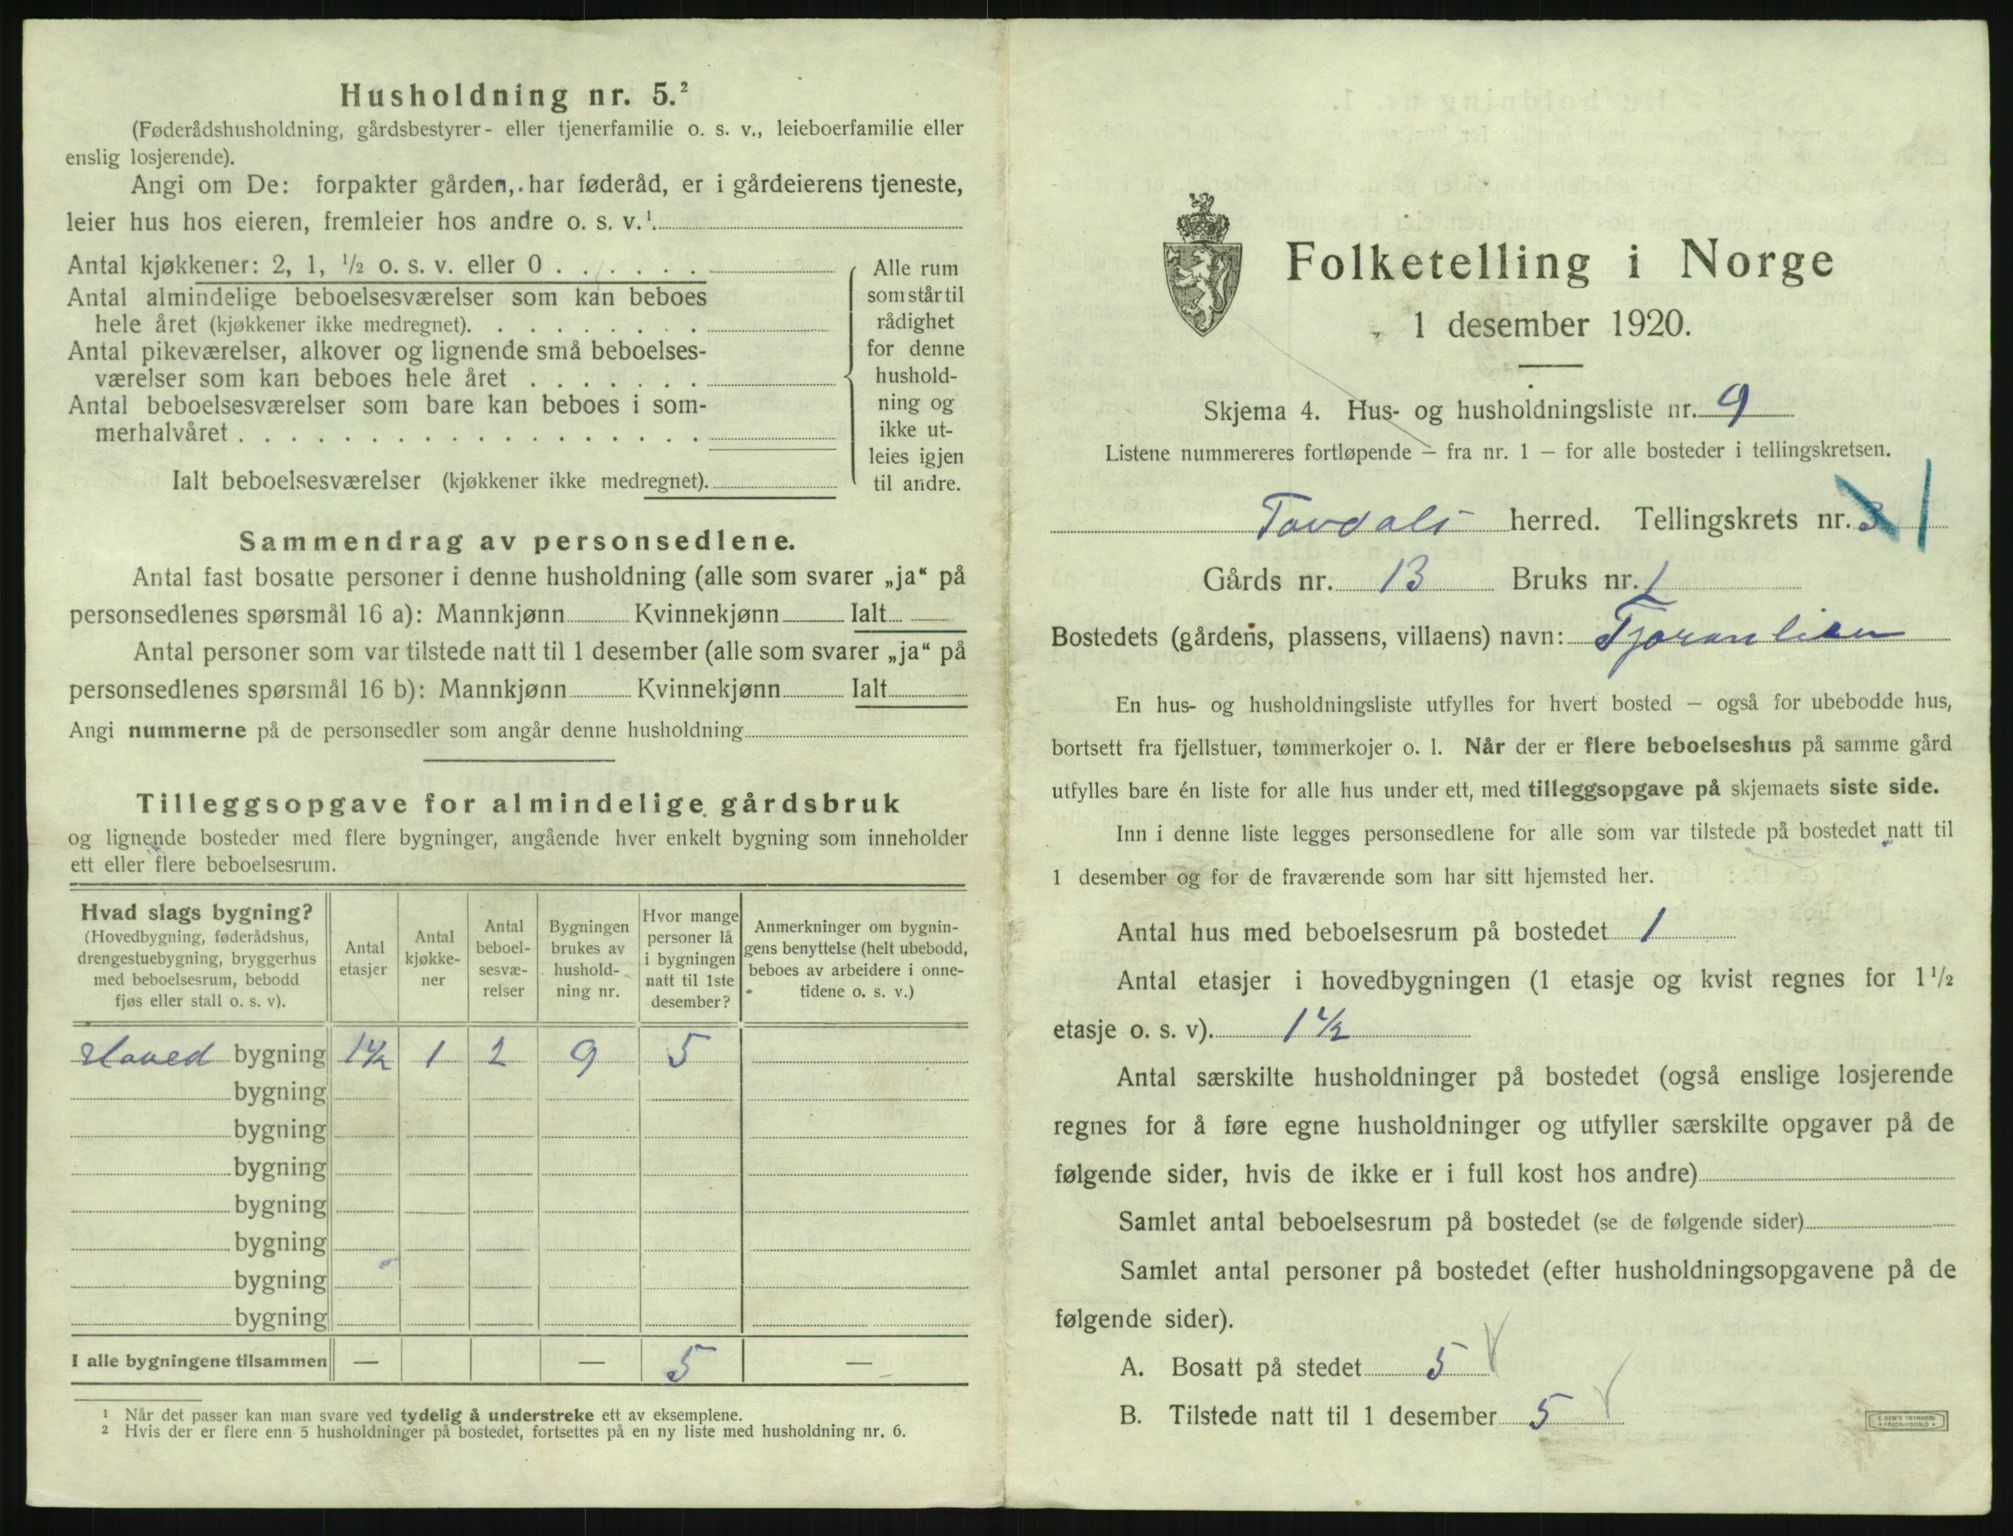 Husholdning nr. 5.²
(Føderådshusholdning, gårdsbestyrer- eller tjenerfamilie o. s. v., leieboerfamilie eller
enslig losjerende).
Angi om De: forpakter gården, har føderåd, er i gårdeierens tjeneste,
leier hus hos eieren, fremleier hos andre o. s. v.¹
Antal kjøkkener: 2, 1, ½ o. s. v. eller 0 . . . . . .
Antal almindelige beboelsesværelser som kan beboes
hele året (kjøkkener ikke medregnet). . . . . . . . .
Antal pikeværelser, alkover og lignende små beboelses-
værelser som kan beboes hele året . . . . . . .
Antal beboelsesværelser som bare kan beboes i som-
merhalvåret . . . . . . . . . . . . . . . . . .
Ialt beboelsesværelser (kjøkkener ikke medregnet).
Alle rum
som står til
rådighet
for denne
hushold-
ning og
ikke ut-
leies igjen
til andre.
Sammendrag av personsedlene.
Antal fast bosatte personer i denne husholdning (alle som svarer „ja“ på
personsedlenes spørsmål 16 a): Mannkjønn Kvinnekjønn Ialt
Antal personer som var tilstede natt til 1 desember (alle som svarer „ja“ på
personsedlenes spørsmål 16 b): Mannkjønn Kvinnekjønn Ialt
Angi nummerne på de personsedler som angår denne husholdning
Tilleggsopgave for almindelige gårdsbruk
og lignende bosteder med flere bygninger, angående hver enkelt bygning som inneholder
ett eller flere beboelsesrum.
Hvad slags bygning?
(Hovedbygning, føderådshus,
drengestuebygning, bryggerhus
med beboelsesrum, bebodd
fjøs eller stall o. s. v).
Antal
etasjer
Antal
kjøkke-
ner
Antal
beboel-
sesvæ-
relser
Bygningen
brukes av
hushold-
ning nr.
Hvor mange
personer lå
i bygningen
natt til 1ste
desember?
Anmerkninger om bygnin-
gens benyttelse (helt ubebodd,
beboes av arbeidere i onne-
tidene o. s. v.)
Hoved bygning 1½ 1 2 9 5
bygning
bygning
bygning
bygning
bygning
bygning
bygning
I alle bygningene tilsammen — — 5 —
¹ Når det passer kan man svare ved tydelig å understreke ett av eksemplene.
² Hvis der er flere enn 5 husholdninger på bostedet, fortsettes på en ny liste med husholdning nr. 6.
Folketelling i Norge
1 desember 1920.
Skjema 4. Hus- og husholdningsliste nr. 9
Listene nummereres fortløpende — fra nr. 1 — for alle bosteder i tellingskretsen.
Tovdals herred. Tellingskrets nr. 3 1
Gårds nr. 13 Bruks nr. 1
Bostedets (gårdens, plassens, villaens) navn: Tjoranlien
En hus- og husholdningsliste utfylles for hvert bosted — også for ubebodde hus,
bortsett fra fjellstuer, tømmerkojer o. l. Når der er flere beboelseshus på samme gård
utfylles bare én liste for alle hus under ett, med tilleggsopgave på skjemaets siste side.
Inn i denne liste legges personsedlene for alle som var tilstede på bostedet natt til
1 desember og for de fraværende som har sitt hjemsted her.
Antal hus med beboelsesrum på bostedet 1
Antal etasjer i hovedbygningen (1 etasje og kvist regnes for 1½
etasje o. s. v). 1½
Antal særskilte husholdninger på bostedet (også enslige losjerende
regnes for å føre egne husholdninger og utfyller særskilte opgaver på de
følgende sider, hvis de ikke er i full kost hos andre)
Samlet antal beboelsesrum på bostedet (se de følgende sider)
Samlet antal personer på bostedet (efter husholdningsopgavene på de
følgende sider).
A. Bosatt på stedet 5
B. Tilstede natt til 1 desember 5
E. SEM'S TRYKKERI
FREDRIKSHALD